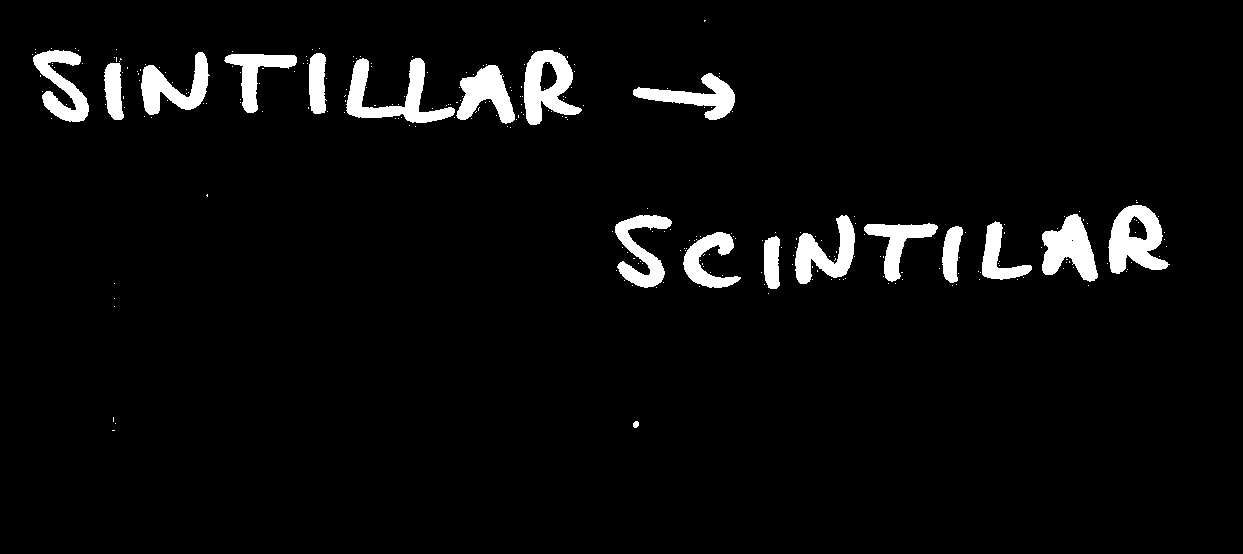 SINTILLAR →
SCINTILAR